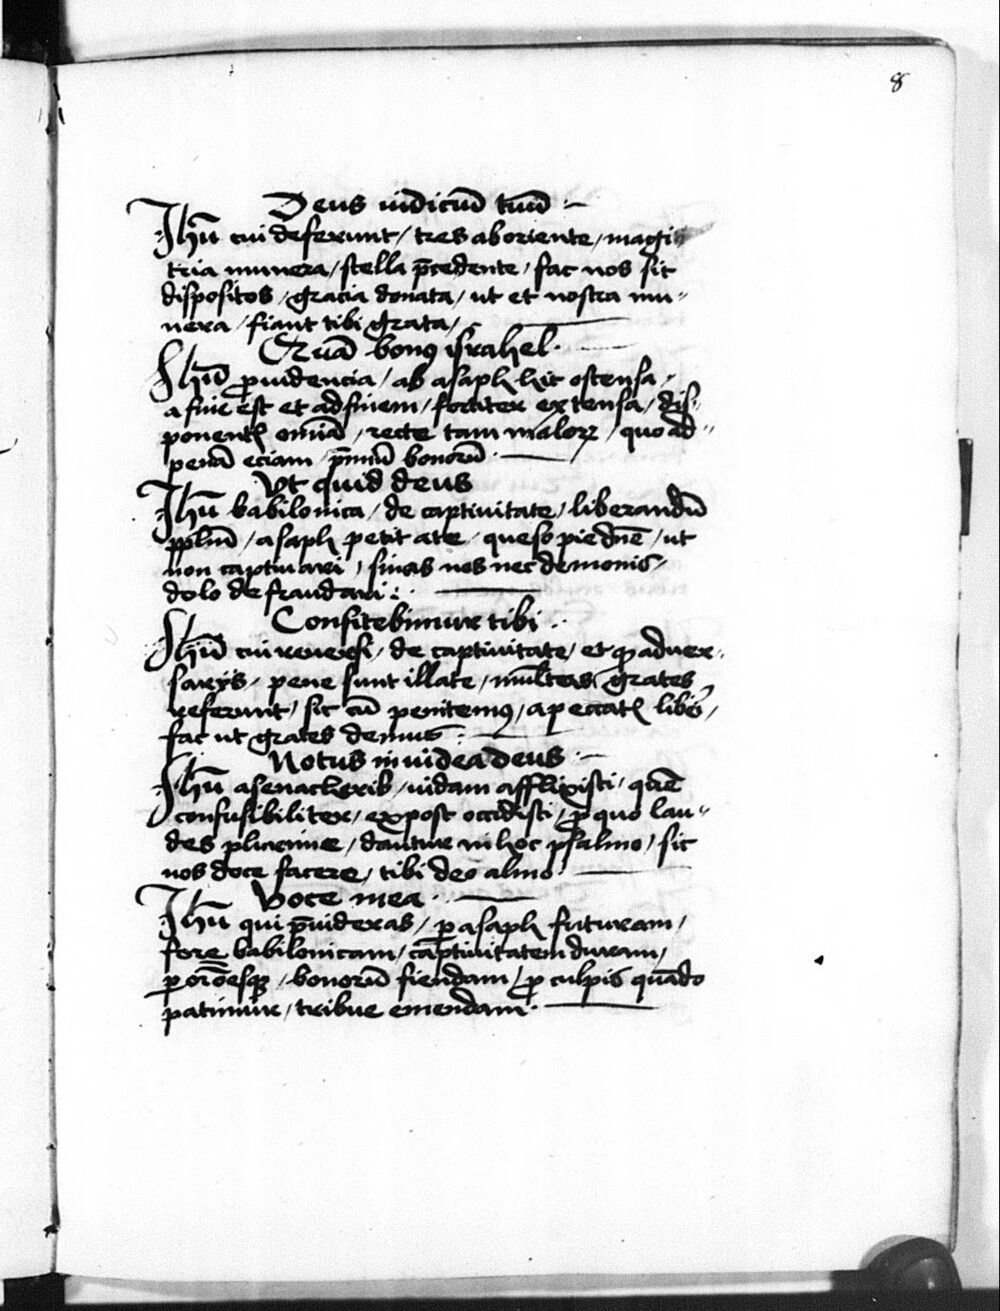 8
Deus iudiciū tuū
Jhū cui deferunt / tres ab oriente / magi
tria munera / stella p̄cedente / fac nos sic
dispositos / gracia donata / ut et nostra mu-
nera / fiant tibi grata /
Quā bonꝰ israhel
Jhū ꝓuidencia / ab asaph hic ostensa /
a fine est et ad finem / fortiter extensa / dis-
ponentꝭ om̄ia / recte tam maloꝝ / quo ad
penā eciam / p̄miū bonorū
Ut quid deus
Jhū babilonica / de captiuitate / liberandū
pplm̄ / asaph petit a te / queso pie dn̄e / ut
non captiuari / sinas nos nec demonis /
dolo defraudari
Confitebimur tibi
Jhū cui reuersi / de captiuitate / et ꝓ aduer-
sarijs / pene sunt illate / multas grates
referunt / sic cū penitemꝰ / a peccatꝭ
fac ut grates demus
Notus in iudea deus
Jhū a senacherib / iudam afflixisti / quē
confusibiliter / expost occidisti / ꝓ quo lau-
des / dantur in hoc psalmo / sic
nos doce facere / tibi deo almo
Voce mea
Jhū qui p̄uideras / ꝑ asaph futuram /
fore babilonicam / captiuitatem duram /
bonorū fiendam / ꝓ culpis quādo
patimur / tribue emendam